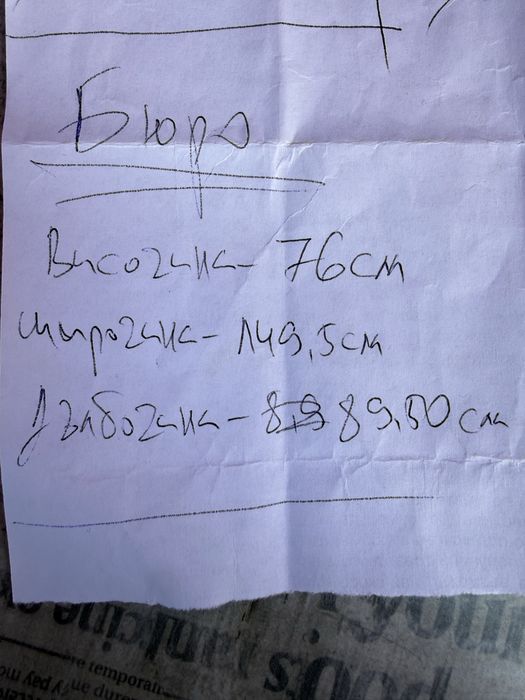 Бюро
Височина - 76 см
широчина - 149,5 см
Дълбочина - 89,50 см
temporar
pay mo